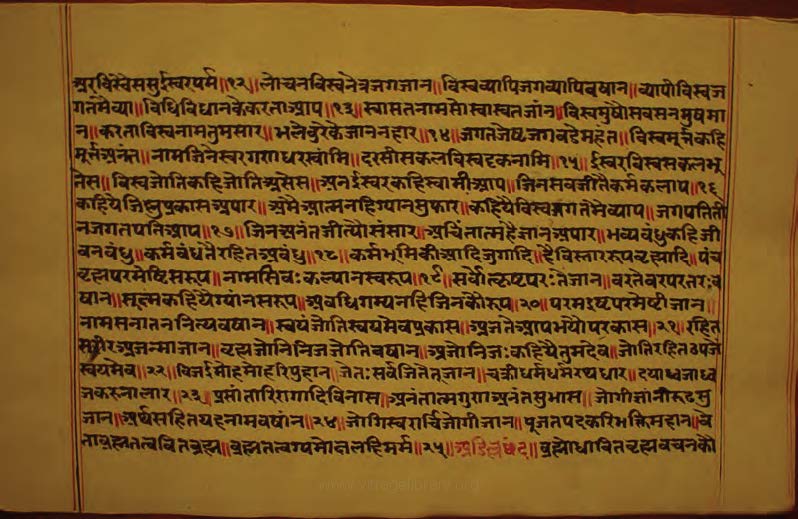 अरविस्वेससुईस्वरपर्म ॥१२॥ लोचनविस्वनेत्रजगजान ॥ विस्वव्यापिजगव्यापिवषान ॥ व्यापीविस्वज
गतमैव्या ॥ विधिविधानकेकरताआप ॥१३॥ स्वासतनामसोस्वास्वतजांन ॥ विस्वमुषौसवसनमुषमा
न ॥ करताविस्वनामतुमसार ॥ भलेवुरेकेजाननहार ॥१४॥ जगतजेष्टजगवडेमहंत ॥ विस्वमूर्त्तकहि
मूर्त्तअनंत ॥ नामजिनेस्वरगराधरस्वांमि ॥ दरसीसकलविस्वदृकनामि ॥१५॥ ईस्वरविस्वसकलभू
तेस ॥ विस्वजोतिकहिजोतिअसेस ॥ अनईस्वरकहिस्वामीआप ॥ जिनसवजीतैकर्मकलाप ॥१६
कहियेजिष्णुप्रकासअपार ॥ अमेआत्मनहिग्यानसुफार ॥ कहियैविस्वजगतमैव्याप ॥ जगपतिती
नजगतपतिआप ॥१७॥ जिनअनंतजीत्यौसंसार ॥ अचिंतात्महैज्ञानअपार ॥ भव्यवंधुकहिजी
वनवंधु ॥ कर्मवंधतैरहितअवंधु ॥१८॥ कर्मभूमिकीआदिजुगादि ॥ हैविस्ताररूपवृह्मादि ॥ पंच
वृह्मपरमेष्टिसरूप ॥ नामसिवःकल्यानस्वरूप ॥१९॥ सर्वोत्कृष्टपरःतेजान ॥ वरतेवरपरतरःव
षान ॥ सूत्मकहियेग्यांनसरूप ॥ अवधिगम्यनहिजिनकौरूप ॥२०॥ परमइष्टपरमेष्टीजान ॥
नामसनातननित्यवषान ॥ स्वयंजोतिस्वयमेवप्रकास ॥ अजतेआपभयौपरकास ॥२१॥ रहित
सरीरअजन्माजान ॥ वृह्मजोनिनिजजोतिवषान ॥ अजोनिजःकहियैतुमदेव ॥ जोतिरहितउपजे
स्वयमेव ॥२२॥ विजईमोहमोहरिपुहान ॥ जेतःसर्वजितेतृजान ॥ चक्रीधर्मधर्मरथधार ॥ दयाध्वजाध्व
जकरुनालार ॥२३॥ प्रसांतारिरागादिविनास ॥ अनंतात्मगुराअनंतसुभास ॥ जोगीज्ञांनीरूढमु
जान ॥ अर्थसहितयहनामवषांन ॥२४॥ जोगिस्वरार्चिजोगीजान ॥ पूजतपदकरिभक्तिमहान ॥ वे
तावृह्मतत्ववितवृह्म ॥ वृह्मतत्वग्यमोक्षलहिमर्म ॥२५॥ अडिल्लछंद ॥ वृह्मोधावितवृह्मवचनकौ
www.vitragelibrary.org